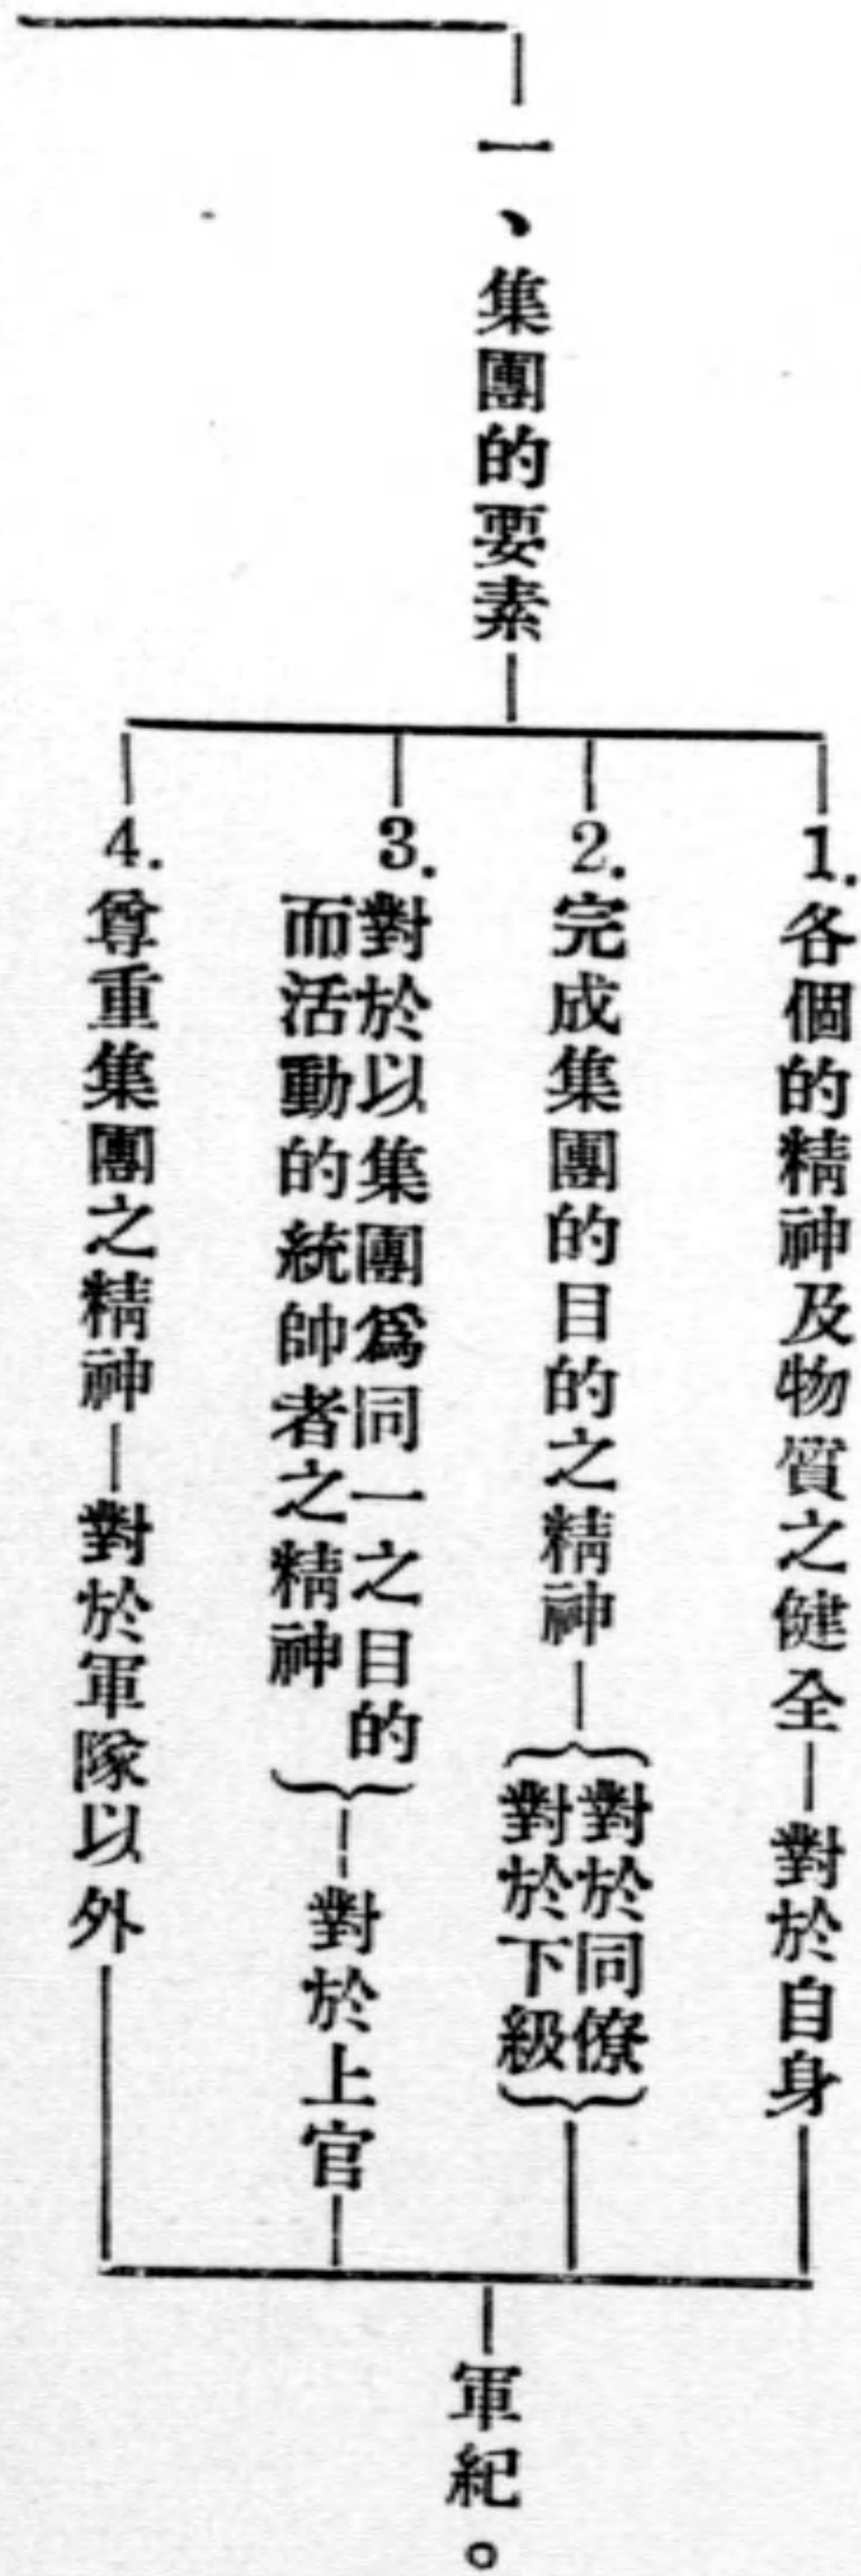 一、集團的要素
1. 各個的精神及物質之健全—對於自身
2. 完成集團的目的之精神—
對於同僚
對於下級
3. 對於以集團爲同一之目的
而活動的統帥者之精神
—對於上官
4. 尊重集團之精神—對於軍隊以外
—軍紀。